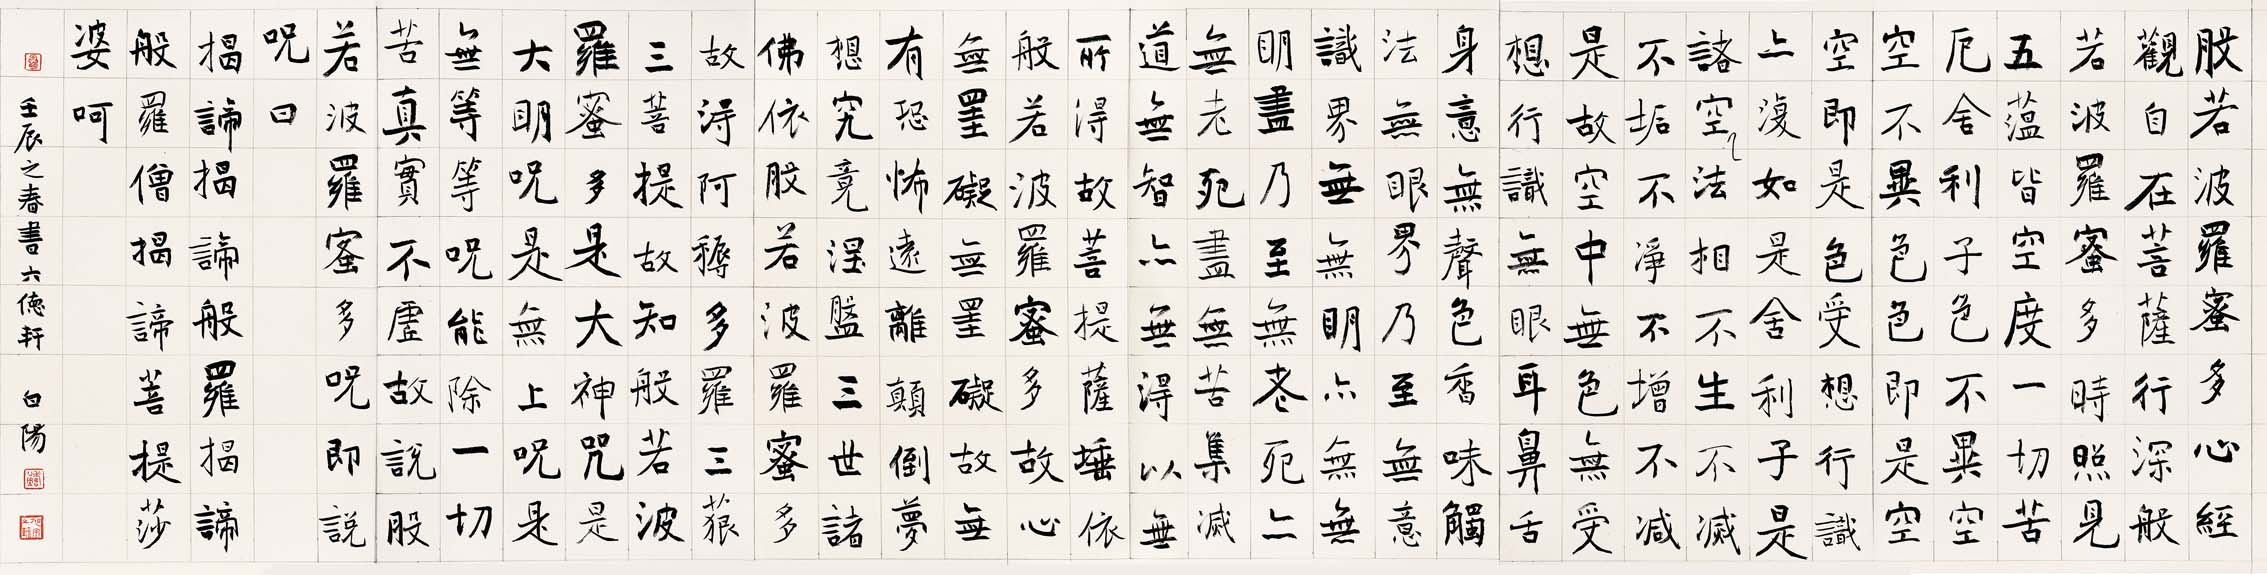 般若波羅蜜多心經
觀自在菩薩行深般
若波羅蜜多時照見
五蘊皆空度一切苦
厄舍利子色不異空
空不異色色即是空
空即是色受想行識
亦復如是舍利子是
諸空法相不生不滅
不垢不淨不增不減
是故空中無色無受
想行識無眼耳鼻舌
身意無聲色香味觸
法無眼界乃至無意
識界無無明亦無無
明盡乃至無老死亦
無老死盡無苦集滅
道無智亦無得以無
所得故菩提薩埵依
般若波羅蜜多故心
無罣礙無罣礙故無
有恐怖遠離顛倒夢
想究竟涅盤三世諸
佛依般若波羅蜜多
故得阿耨多羅三藐
三菩提故知般若波
羅蜜多是大神咒是
大明呪是無上呪是
無等等呪能除一切
苦真實不虛故說般
若波羅蜜多呪即說
呪曰
揭諦揭諦般羅揭諦
般羅僧揭諦菩提莎
婆呵
壬辰之春書六德軒 白陽